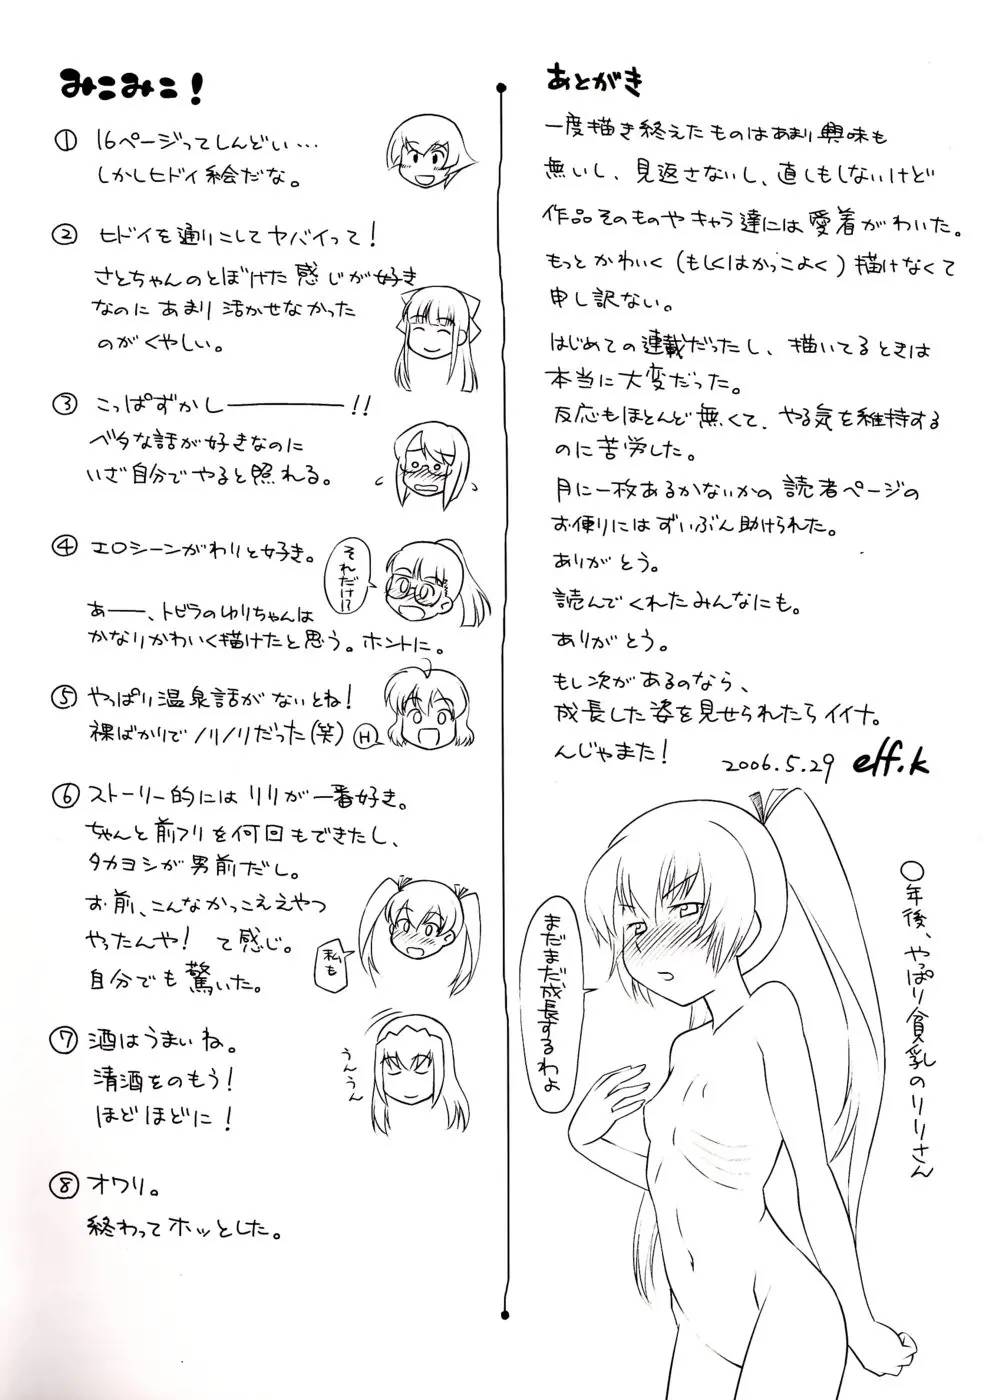 みこみこ！
① 16ページってしんどい…
しかしヒドイ絵だな。
② ヒドイを通りこしてヤバイって！
さとちゃんのとぼけた感じが好き
なのにあまり活かせなかった
のがくやしい。
③ こっぱずかし――――!!
ベタな話が好きなのに
いざ自分でやると照れる。
④ エロシーンがわりと好き。
それだけ!?
あー、トビラのゆりちゃんは
かなりかわいく描けたと思う。ホントに。
⑤ やっぱり温泉話がないとね！
裸ばかりでノリノリだった(笑)
H
⑥ ストーリー的にはリリが一番好き。
ちゃんと前フリを何回もできたし、
タカヨシが男前だし。
お前、こんなかっこええやつ
やったんや！ て感じ。
自分でも驚いた。
私も
⑦ 酒はうまいね。
清酒をのもう！
ほどほどに！
うんうん
⑧ オワリ。
終わってホッとした。
あとがき
一度描き終えたものはあまり興味も
無いし、見返さないし、直しもしないけど
作品そのものやキャラ達には愛着がわいた。
もっとかわいく(もしくはかっこよく)描けなくて
申し訳ない。
はじめての連載だったし、描いてるときは
本当に大変だった。
反応もほとんど無くて、やる気を維持する
のに苦労した。
月に一枚あるかないかの読者ページの
お便りにはずいぶん助けられた。
ありがとう。
読んでくれたみんなにも。
ありがとう。
もし次があるのなら、
成長した姿を見せられたらイイナ。
んじゃまた！
2006.5.29 elf.k
○年後、やっぱり貧乳のリリさん
まだまだ成長するわよ